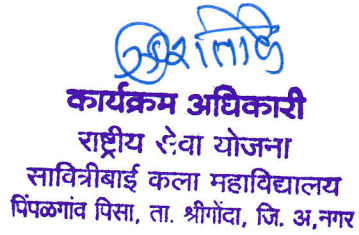 कार्यक्रम अधिकारी
राष्ट्रीय सेवा योजना
सावित्रीबाई कला महाविद्यालय
पिंपळगांव पिसा, ता. श्रीगोंदा, जि. अ,नगर